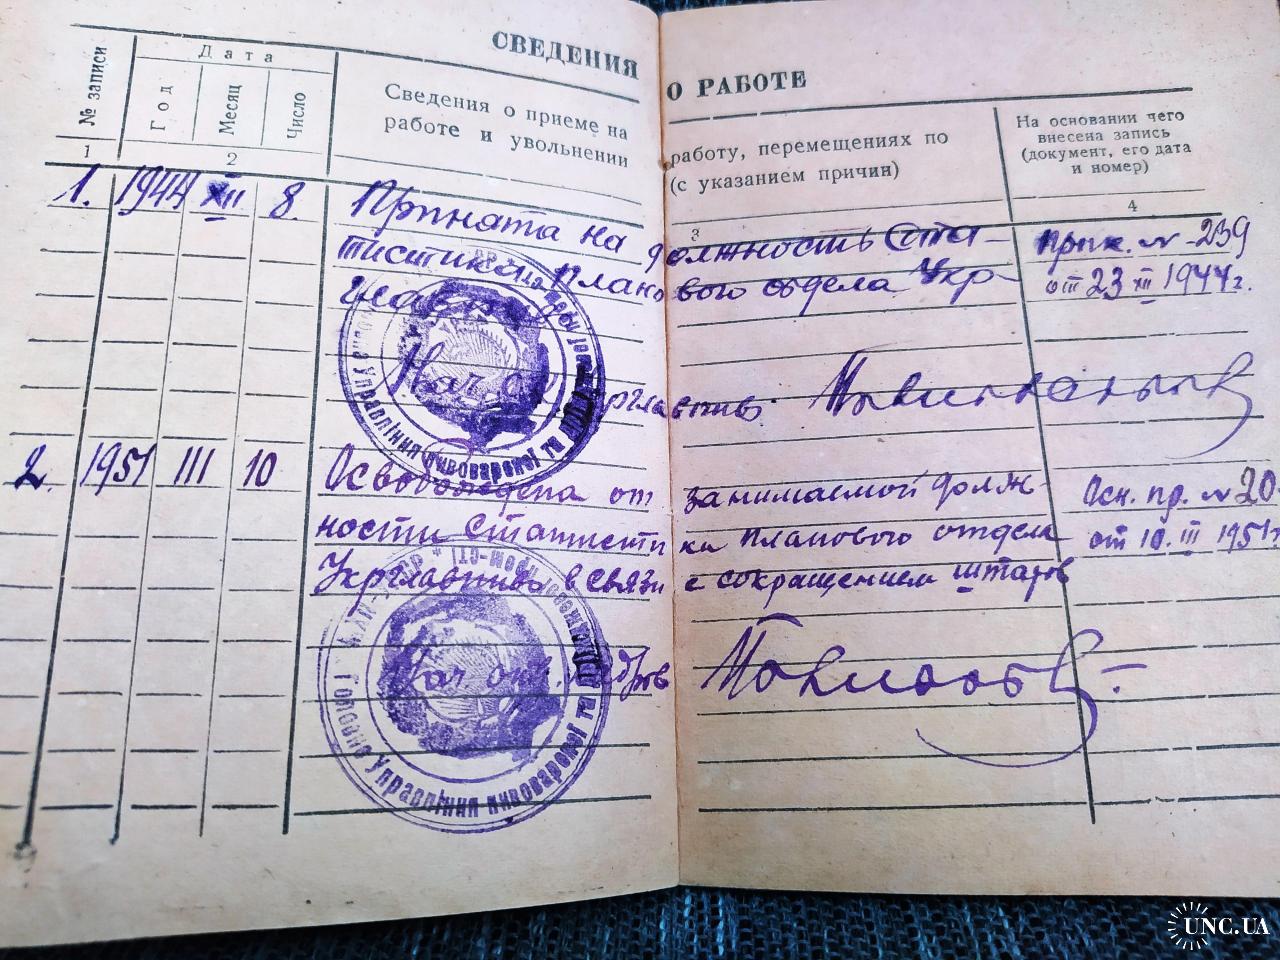 СВЕДЕНИЯ О РАБОТЕ
№ записи
Дата
Год
Месяц
Число
Сведения о приеме на работу, перемещениях по
работе и увольнении (с указанием причин)
На основании чего
внесена запись
(документ, его дата
и номер)
1
2
3
4
1. 1944 XII 8. Принята на должность Ста-
тистика планового отдела Укр-
главпиво
прик. № 239
от 23 XII 1944 г.
Нач. Укрглавпиво
2. 1951 III 10 Освобождена от занимаемой долж-
ности Статистика планового отдела
Укрглавпиво в связи с сокращением штатов
Осн. пр. № 20
от 10. III 1951 г.
Нач. отд. кадров
Головне Управління пивовареної та
UNC.UA